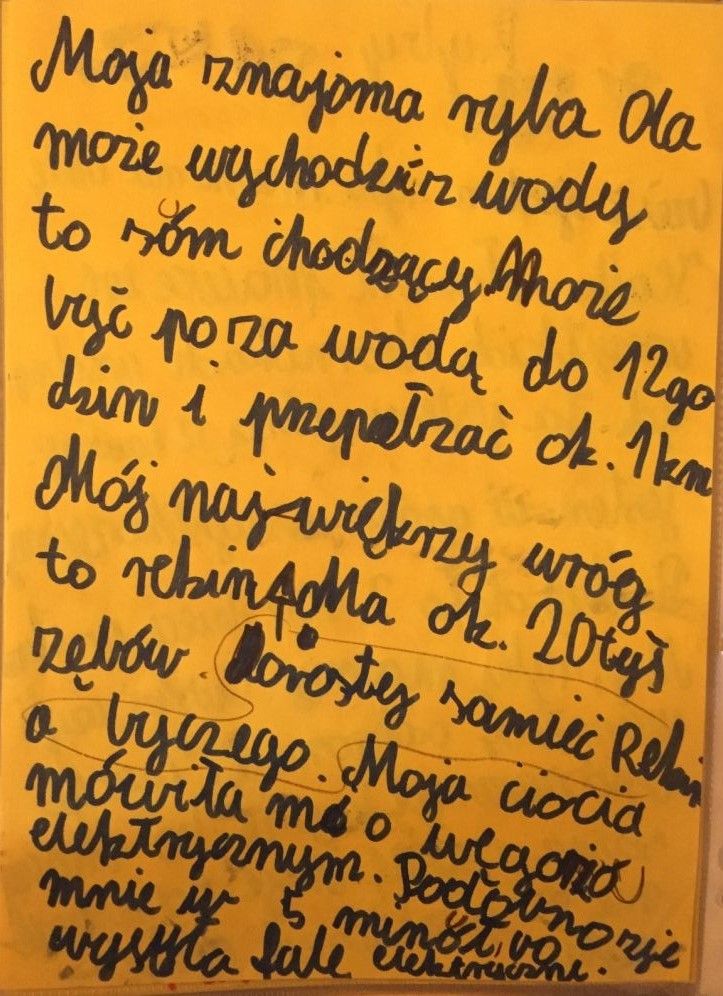 Moja znajoma ryba Ola
może wychodzić z wody
to sóm chodzący. Może
być poza wodą do 12 go
dzin i przepełzać ok. 1 km
Mój najwiękrzy wróg
to rekin. Ma ok. 20 tyś
zębów. Dorosły samieć Reki
a byczego. Moja ciocia
mówiła mi o węgorzo
elektrycznym. Podówno zje
mnie w 5 minót, bo
wysyła fale elektryczne.